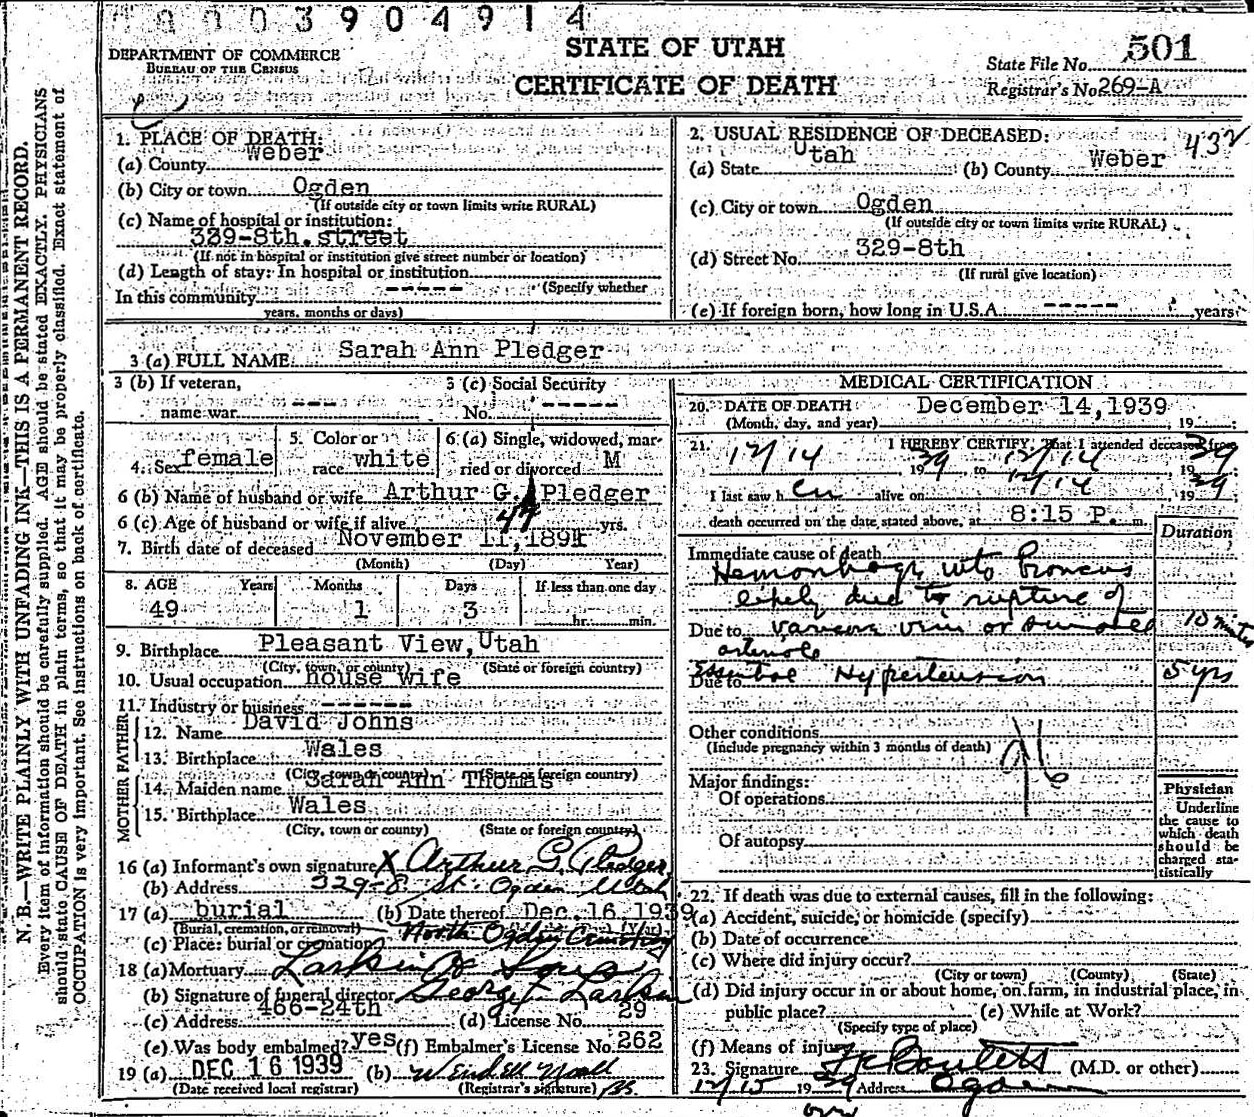 0003904914
DEPARTMENT OF COMMERCE
BUREAU OF THE CENSUS
STATE OF UTAH
CERTIFICATE OF DEATH
State File No. 501
Registrar's No. 269-A
N. B.—WRITE PLAINLY WITH UNFADING INK—THIS IS A PERMANENT RECORD.
Every item of information should be carefully supplied. AGE should be stated EXACTLY. PHYSICIANS
should state CAUSE OF DEATH in plain terms, so that it may be properly classified. Exact statement of
OCCUPATION is very important. See instructions on back of certificate.
1. PLACE OF DEATH:
(a) County Weber
(b) City or town Ogden
(If outside city or town limits write RURAL)
(c) Name of hospital or institution:
329-8th. street
(If not in hospital or institution give street number or location)
(d) Length of stay: In hospital or institution -----
(Specify whether
In this community
years, months or days)
2. USUAL RESIDENCE OF DECEASED: 432
(a) State Utah (b) County Weber
(c) City or town Ogden
(If outside city or town limits write RURAL)
(d) Street No. 329-8th
(If rural give location)
(e) If foreign born, how long in U.S.A. ----- years
3 (a) FULL NAME Sarah Ann Pledger
3 (b) If veteran, 3 (c) Social Security
name war --- No. -----
4. Sex female 5. Color or race white 6 (a) Single, widowed, married or divorced M
6 (b) Name of husband or wife Arthur G. Pledger
6 (c) Age of husband or wife if alive yrs.
7. Birth date of deceased November 11,
(Month) (Day) Year)
8. AGE Years Months Days If less than one day
49 1 3 hr. min.
9. Birthplace Pleasant View, Utah
(City, town, or county) (State or foreign country)
10. Usual occupation house wife
11. Industry or business ------
FATHER
12. Name David Johns
13. Birthplace Wales
(City, town or county) (State or foreign country)
MOTHER
14. Maiden name Sarah Ann Thomas
15. Birthplace Wales
(City, town or county) (State or foreign country)
16 (a) Informant's own signature X Arthur G. Pledger
(b) Address 329-8 St. Ogden Utah
17 (a) burial (b) Date thereof Dec. 16, 1939
(Burial, cremation, or removal)
(c) Place: burial or cremation North Ogden Cemetery
18 (a) Mortuary Larkin & Sons
(b) Signature of funeral director George Larkin
(c) Address 466-24th (d) License No. 29
(e) Was body embalmed? yes (f) Embalmer's License No. 262
19 (a) DEC 16 1939 (b) Wendell
(Date received local registrar) (Registrar's signature)
MEDICAL CERTIFICATION
20. DATE OF DEATH December 14, 1939 19
(Month, day, and year)
21. I HEREBY CERTIFY, That I attended deceased from
12/14 1939 to 12/14 1939
I last saw h er alive on 12/14 1939
death occurred on the date stated above, at 8:15 P. m.
Duration
Immediate cause of death
Hemorrhage into Broncus
likely due to rupture of
Due to varicose vein or 10
arteriole
Due to Essential Hypertension 5 yrs
Other conditions
(Include pregnancy within 3 months of death)
Major findings:
Of operations
Of autopsy
Physician
Underline
the cause to
which death
should be
charged sta-
tistically
22. If death was due to external causes, fill in the following:
(a) Accident, suicide, or homicide (specify)
(b) Date of occurrence
(c) Where did injury occur?
(City or town) (County) (State)
(d) Did injury occur in or about home, on farm, in industrial place, in
public place? (e) While at Work?
(Specify type of place)
(f) Means of injury
23. Signature (M.D. or other)
12/15 1939 Address Ogden
over